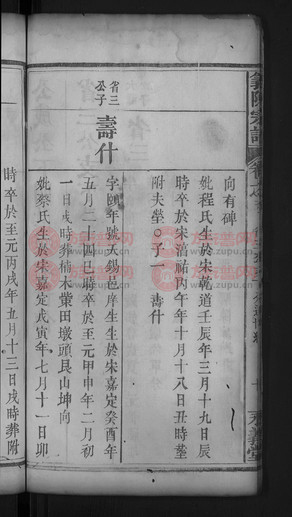 向有碑
妣程氏生於宋乾道壬辰年三月十九日辰
時卒於宋淳祐丙午年十月十八日丑時塟
附夫塋○子一 壽什
省三公子 壽什
字 年號大 邑庠生生於宋嘉定癸酉年
五月二十四巳時卒於至元甲申年二月初
一日戌時葬楠木葉田墩頭艮山坤向
妣蔡氏生於宋嘉定戊寅年七月十一日卯
時卒於至元丙戌年五月十三日戌時葬附